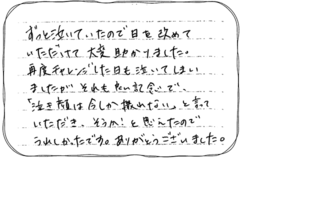 ずっと泣いていたので日を改めて
いただけて大変助かりました。
再度チャレンジした日も泣いてしまい
ましたが、それも良い記念で、
「泣き顔は今しか撮れない」と言って
いただき、そうか！と思えたので
うれしかったです。ありがとうございました。